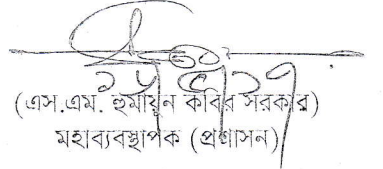 ১৭|৫|১৭
(এস.এম. হুমায়ুন কবির সরকার)
মহাব্যবস্থাপক (প্রশাসন)